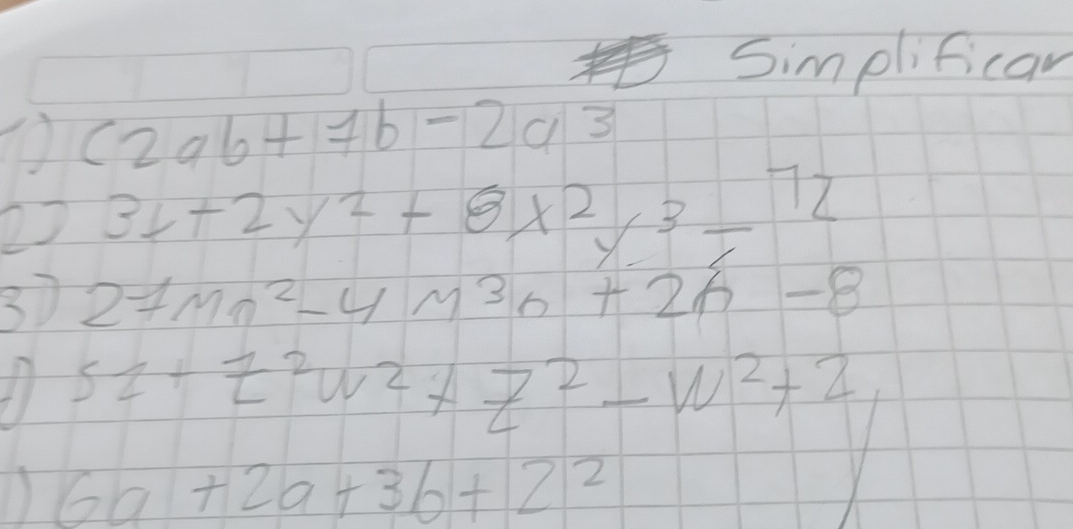 Simplificar
1) (2ab + 7b - 2a³
2) 3z + 2y² + 8x²y³ - 7z
3) 21mn² - 4m³n + 2h - 8
5z + z²w² + z² - w² + 2
) 6a + 2a + 3b + 2²